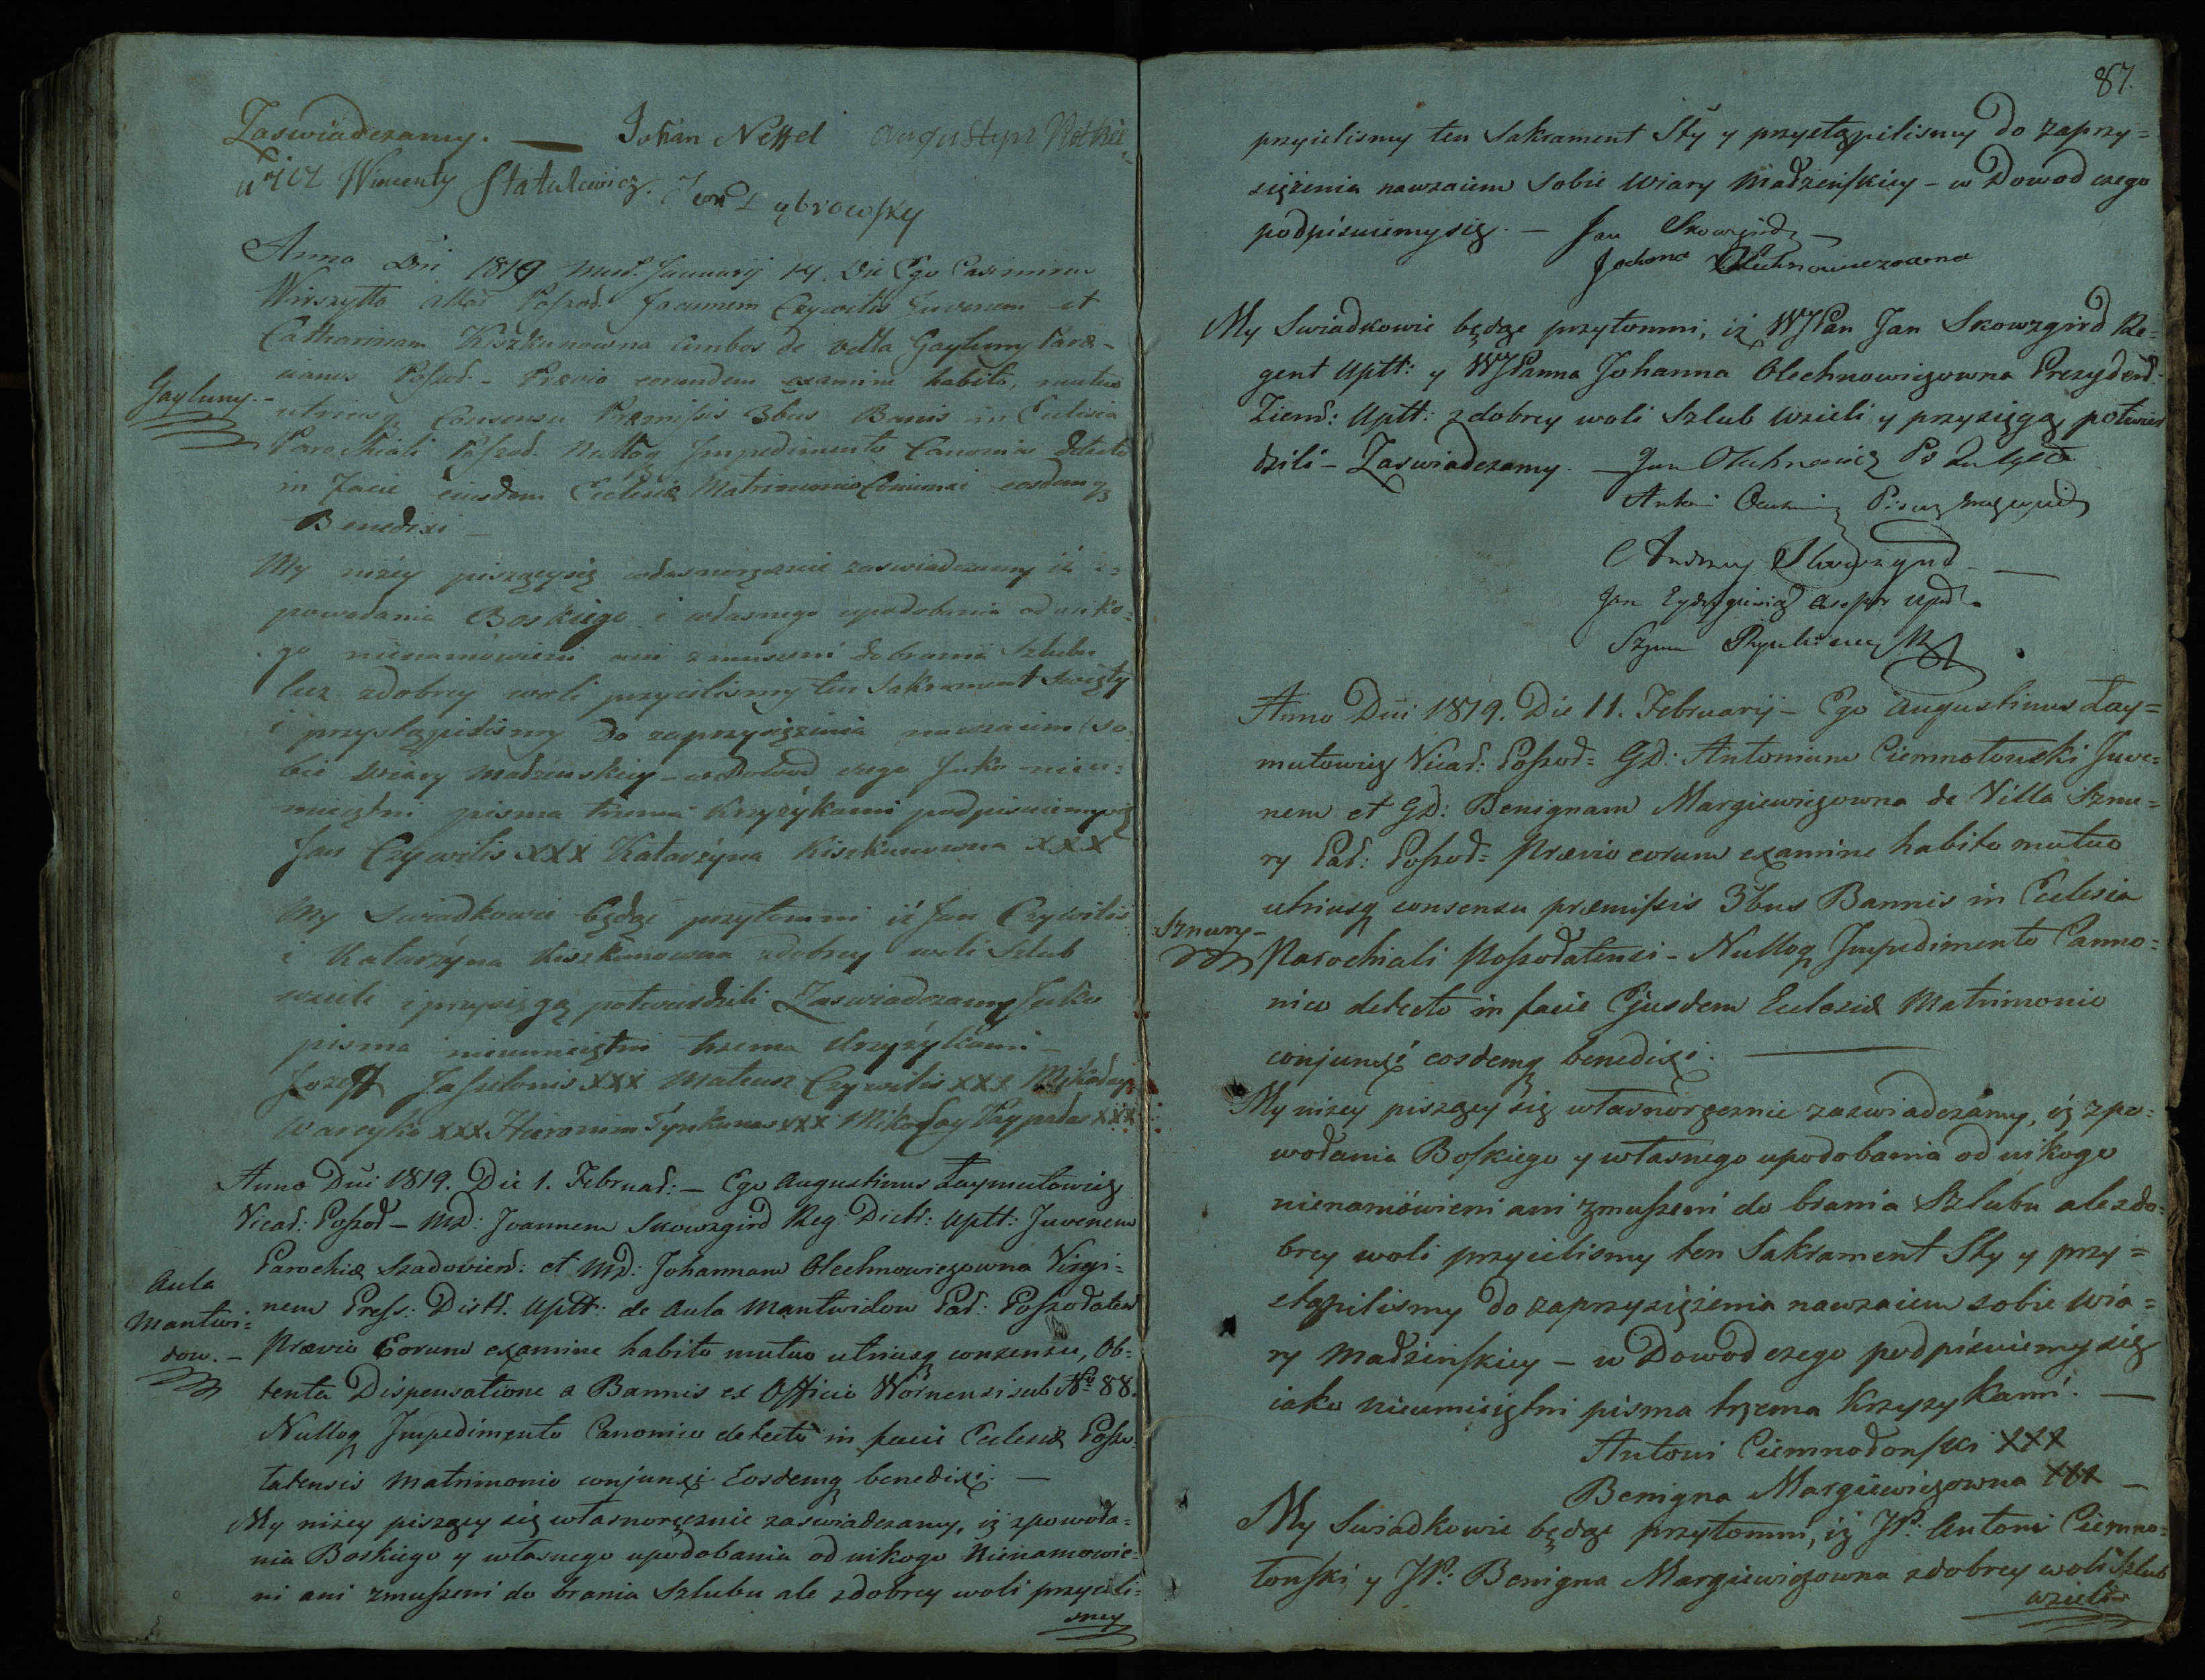 Zaswiadczamy. — Johan Neffel Augustyn Rotkie=
wicz Wincenty Statulewicz. Jan Dąbrowsky
Anno Dni 1819 Mens. Januarij 14. Die Ego Casimirus
Wirszyłło Altar Poszoł. Joannem Czywilis Juvenem et
Catharinam Kiszkunowna ambos de villa Gayluny Paro-
Gayluny.-
cianus Poszoł - Prævio eorundem examine habito, mutuo
utriusq Consensu Præmissis 3bus Banis in Eclesia
Parochiali Poszoł. Nulloq Impedimento Canonico detecto
in facie eiusdem Eclesiæ Matrimonio Coniunxi eosdemq
Benedixi —
My niżey piszącysię własnoręcznie zaswiadczamy iż z=
powołania Boskiego i własnego upodobania od niko=
go nienamówieni ani zmuszeni do brania Szlubu
lecz zdobrey woli przyielismy ten Sakrament Swięty
i przystąpilismy do zaprzysiężenia nawzaiem so
bie wiary Małżenskiey - w Dowod czego Jako nieu=
mieiętni pisma trzema krzyżykami podpisuiemysię
Jan Czywilis XXX Katarżyna Kiszkunowna XXX
My Swiadkowie będąc przytomni iż Jan Czywilis
i Katarżyna Kiszkunowna zdobrey woli Szlub
wzieli i przysięgą potwierdzili Zaswiadczamy Jako
pisma nieumieiętni trzema krzyżykami —
Jozeff Jasulonis XXX Mateusz Czywilis XXX Mikołay
Wareyko XXX Hieronim Tynkunas XXX Mikołay XXX
Anno Dni 1819. Die 1. Februar: — Ego Augustinus Łaymutowicz
Vicar: Poszoł — MD: Joannem Skowzgird Reg: Distr: Uptt: Juvenem
Parochiæ Szadovien: et MD: Johannam Olechnowiczowna Virgi=
Aula
Mantwi=
dow. —
nem Press: Distr. Uptt: de Aula Mantwidow Par: Poszołaten
Prævio Eorum examine habito mutuo utriusq consensu, Ob=
tenta Dispensatione a Bannis ex Officio Wornensi sub No 88.
Nulloq Impedimento Canonico detecto in facie Eclesiæ Poszo=
łatensis Matrimonio conjunxi Eosdemq benedixi. —
My niżey piszący się własnoręcznie zaswiadczamy, iż zpowoła=
nia Boskiego y własnego upodobania od nikogo Nienamowie=
ni ani zmuszeni do brania Szlubu ale zdobrey woli przyieli=
smy
87.
przyielismy ten Sakrament Sty y przystąpilismy do zaprzy=
siężenia nawzaiem sobie Wiary Małżeńskiey - w Dowod czego
podpisuiemy się. — Jan Skowzgird —
Johana Olechnowiczowna
My Swiadkowie będąc przytomni, iż WJPan Jan Skowzgird Re=
gent Uptt: y WJPanna Johanna Olechnowiczowna Prezydent.
Ziems: Uptt: zdobrey woli Szlub wzieli y przysięgą potwier
dzili — Zaswiadczamy. — Jan Olechnowicz
Antoni
Andrzey Skowzgird —
Jan
Szymon
Anno Dni 1819. Die 11. Februarij — Ego Augustinus Łay=
mutowicz Vicar: Poszoł= GD: Antonium Ciemnołonski Juve=
nem et GD: Benignam Margiewiczowna de Villa Sznu=
ry Par: Poszoł= Prævio eorum examine habito mutuo
utriusq consensu præmissis 3bus Bannis in Eclesia
Sznury —
Parochiali Poszołatensi — Nulloq Impedimento Canno=
nico detecto in facie Ejusdem Eclesiæ Matrimonio
conjunxi eosdemq benedixi. —
My niżey piszący się własnoręcznie zaswiadczamy, iż zpo=
wołania Boskiego y własnego upodobania od nikogo
nienamówieni ani zmuszeni do brania Szlubu ale zdo=
brey woli przyielismy ten Sakrament Sty y przy=
stąpilismy do zaprzysiężenia nawzaiem sobie wia=
ry Małżeńskiey — w Dowod czego podpisuiemy się
iako nieumieiętni pisma trzema krzyżykami. —
Antoni Ciemnołonski XXX
Benigna Margiewiczowna XXX —
My Swiadkowie będąc przytomni, iż JP: Antoni Ciemno=
łonski y JP: Benigna Margiewiczowna zdobrey woli Szlub
wzieli